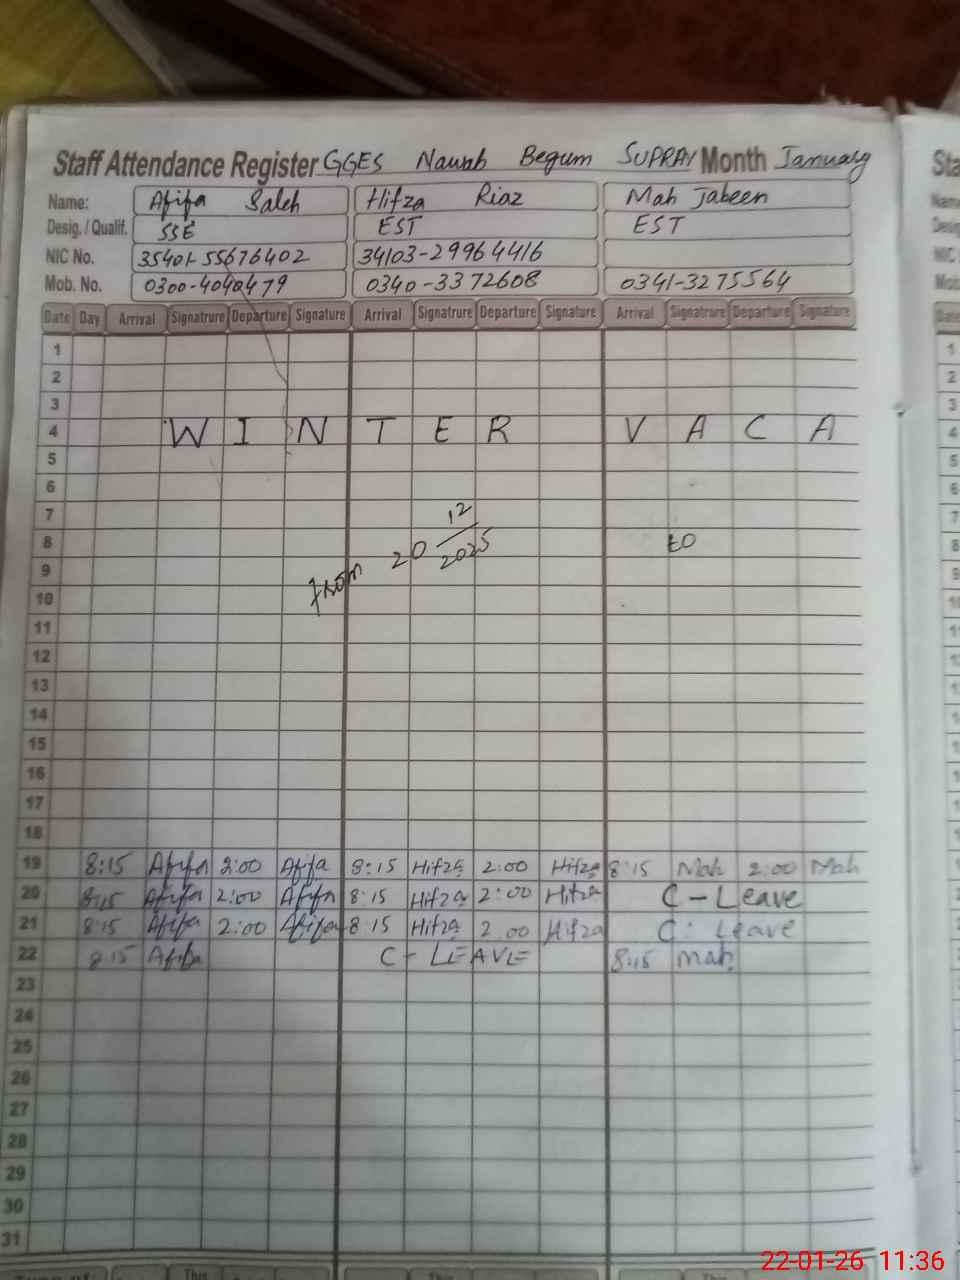 Staff Attendance Register GGES Nawab Begum SUPRAY Month January
Name: Afifa Saleh Hifza Riaz Mah Jabeen
Desig. / Qualif. SSE EST EST
NIC No. 35401-55676402 34103-29964416
Mob. No. 0300-4040479 0340-3372608 0341-3275564
Date Day Arrival Signatrure Departure Signature Arrival Signatrure Departure Signature Arrival Signatrure Departure Signature
1
2
3
4 W I N T E R V A C A
5
6
7
8 from 20 12/2025 to
9
10
11
12
13
14
15
16
17
18
19 8:15 Afifa 2:00 Afifa 8:15 Hifza 2:00 Hifza 8:15 Mah 2:00 Mah
20 8:15 Afifa 2:00 Afifa 8:15 Hifza 2:00 Hifza C-Leave
21 8:15 Afifa 2:00 Afifa 8:15 Hifza 2:00 Hifza C-Leave
22 8:15 Afifa C-LEAVE 8:15 Mah
23
24
25
26
27
28
29
30
31
This
22-01-26 11:36